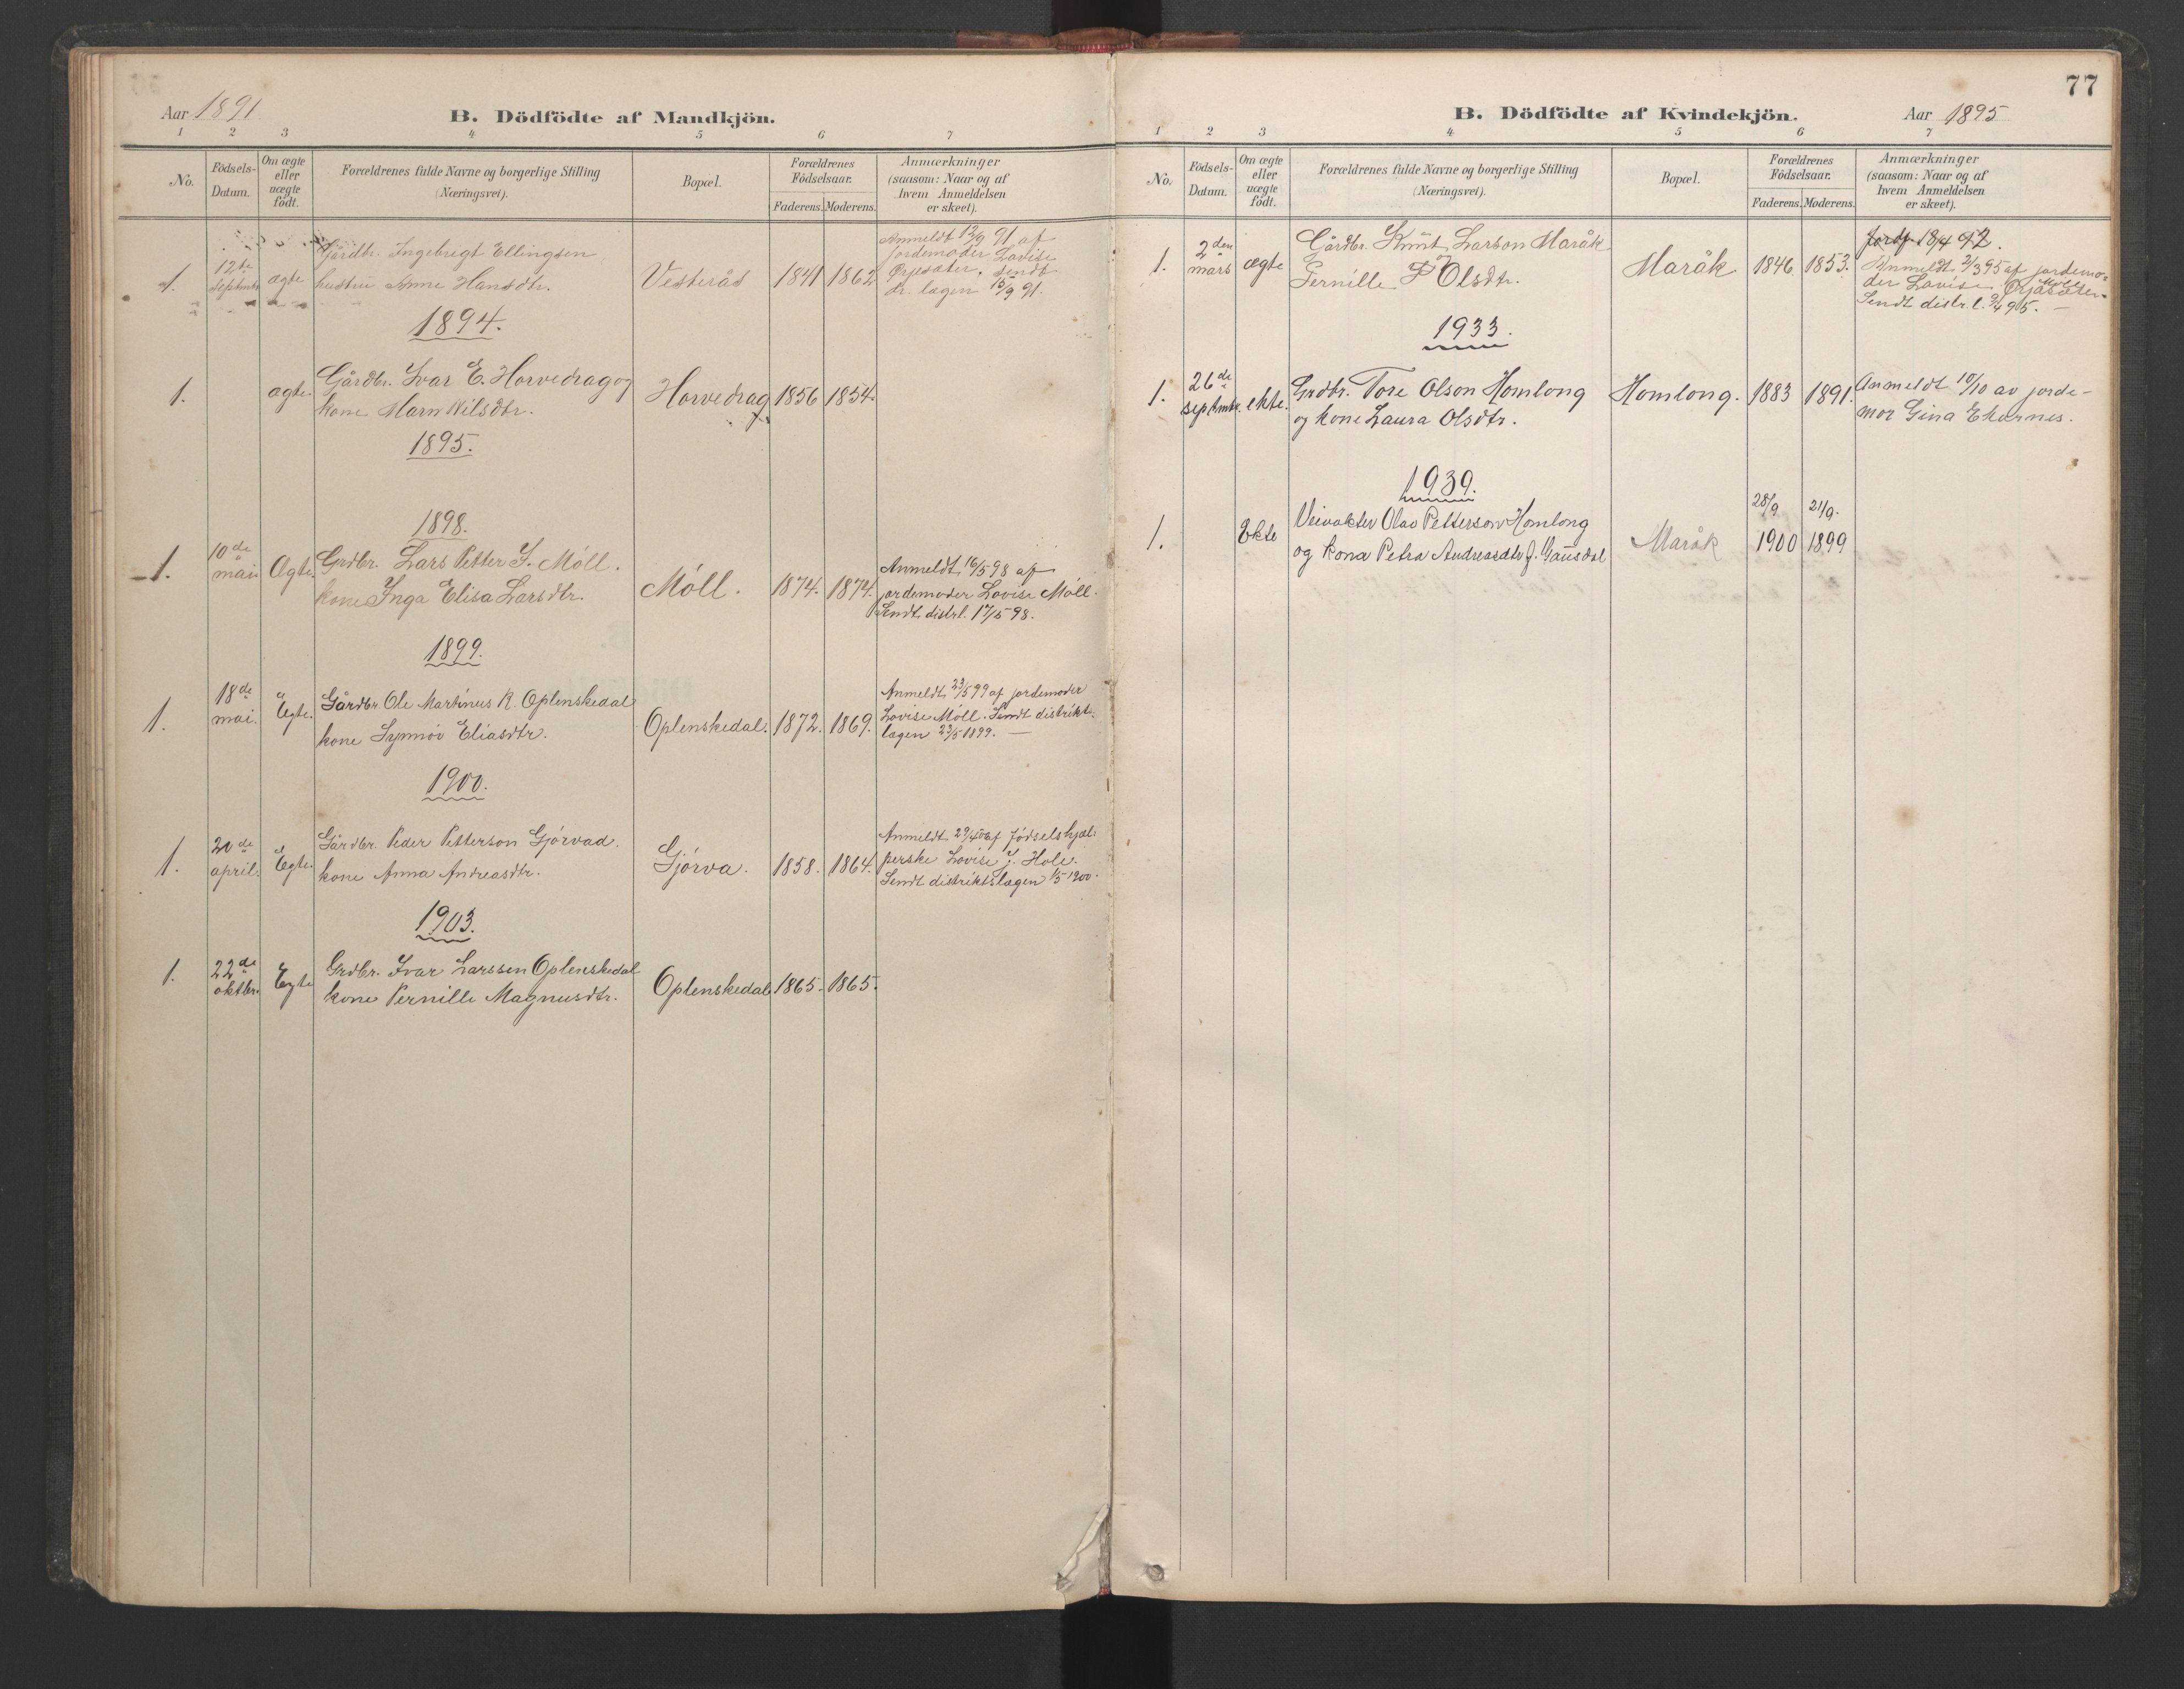 Aar 1891.
B. Dödfödte af Mandkjön.
1 2 3 4 5 6 7
No.
Födsels-
Datum.
Om ægte
eller
uægte
födt.
Forældrenes fulde Navne og borgerlige Stilling
(Næringsvei).
Bopæl.
Forældrenes
Födselsaar.
Faderens. Moderens.
Anmærkninger
(saasom: Naar og af
hvem Anmeldelsen
er skeet).
1.
12te
Septembr
ægte
Gårdbr. Ingebrigt Ellingsen
hustru Anne Hansdtr.
Vesterås
1841 1862
Anmeldt 12/9 91 af
jordemoder Lovise
Ørjesæter. Sendt
dr. lægen 15/9 91.
1894.
1.
ægte.
Gårdbr. Ivar E. Horvedrag og
kone Marn Nilsdtr.
Horvedrag
1856 1854.
1895.
1898.
1.
10de
mai
Ægte.
Grdbr. Lars Petter I. Möll.
kone Inga Elisa Larsdtr.
Möll.
1874. 1874.
Anmeldt 16/5 98 af
jordemoder Lovise Möll.
Sendt distrl. 17/5 98.
1899.
1.
18de
mai.
Egte.
Gårdbr. Ole Martinus R. Oplenskedal
kone Synnöv Eliasdtr.
Oplenskedal.
1872. 1869.
Anmeldt 23/5 99 af jordemoder
Lovise Möll. Sendt distrikts-
lægen 23/5 1899. —
1900.
1.
20de
april.
Egte.
Gårdbr. Peder Petterson Gjörvad.
kone Anna Andreasdtr.
Gjörva.
1858. 1864.
Anmeldt 29/4 00 af födselshjæl-
perske Lovise J. Hole.
Sendt distriktslægen 1/5 1900.
1903.
1.
22de
oktbr.
Egte
Grdbr. Ivar Larssen Oplenskedal
kone Pernille Magnusdtr.
Oplenskedal
1865. 1865.
77
B. Dödfödte af Kvindekjön.
Aar 1895
1 2 3 4 5 6 7
No.
Födsels-
Datum.
Om ægte
eller
uægte
födt.
Forældrenes fulde Navne og borgerlige Stilling
(Næringsvei).
Bopæl.
Forældrenes
Födselsaar.
Faderens. Moderens.
Anmærkninger
(saasom: Naar og af
hvem Anmeldelsen
er skeet).
1.
2den
mars
ægte
Gårdbr. Knut Larson Maråk
og
Pernille P Olsdtr.
Maråk
1846 1853.
18/4 92.
Anmeldt 2/3 95 af jordemo-
der Lovise Ørjasæter.
Sendt distr.l. 2/4 95. —
1933.
1.
26de
septembr.
ekte.
Grdbr. Tore Olson Homlong
og kone Laura Olsdtr.
Homlong.
1883 1891.
Anmeldt 10/10 av jorde-
mor Gina Ekornes.
1939.
1.
Ekte
Veivakter Olav Petterson Homlong
og kona Petra Andreasdtr f. Gausdal
Maråk
28/9 21/9.
1900 1899